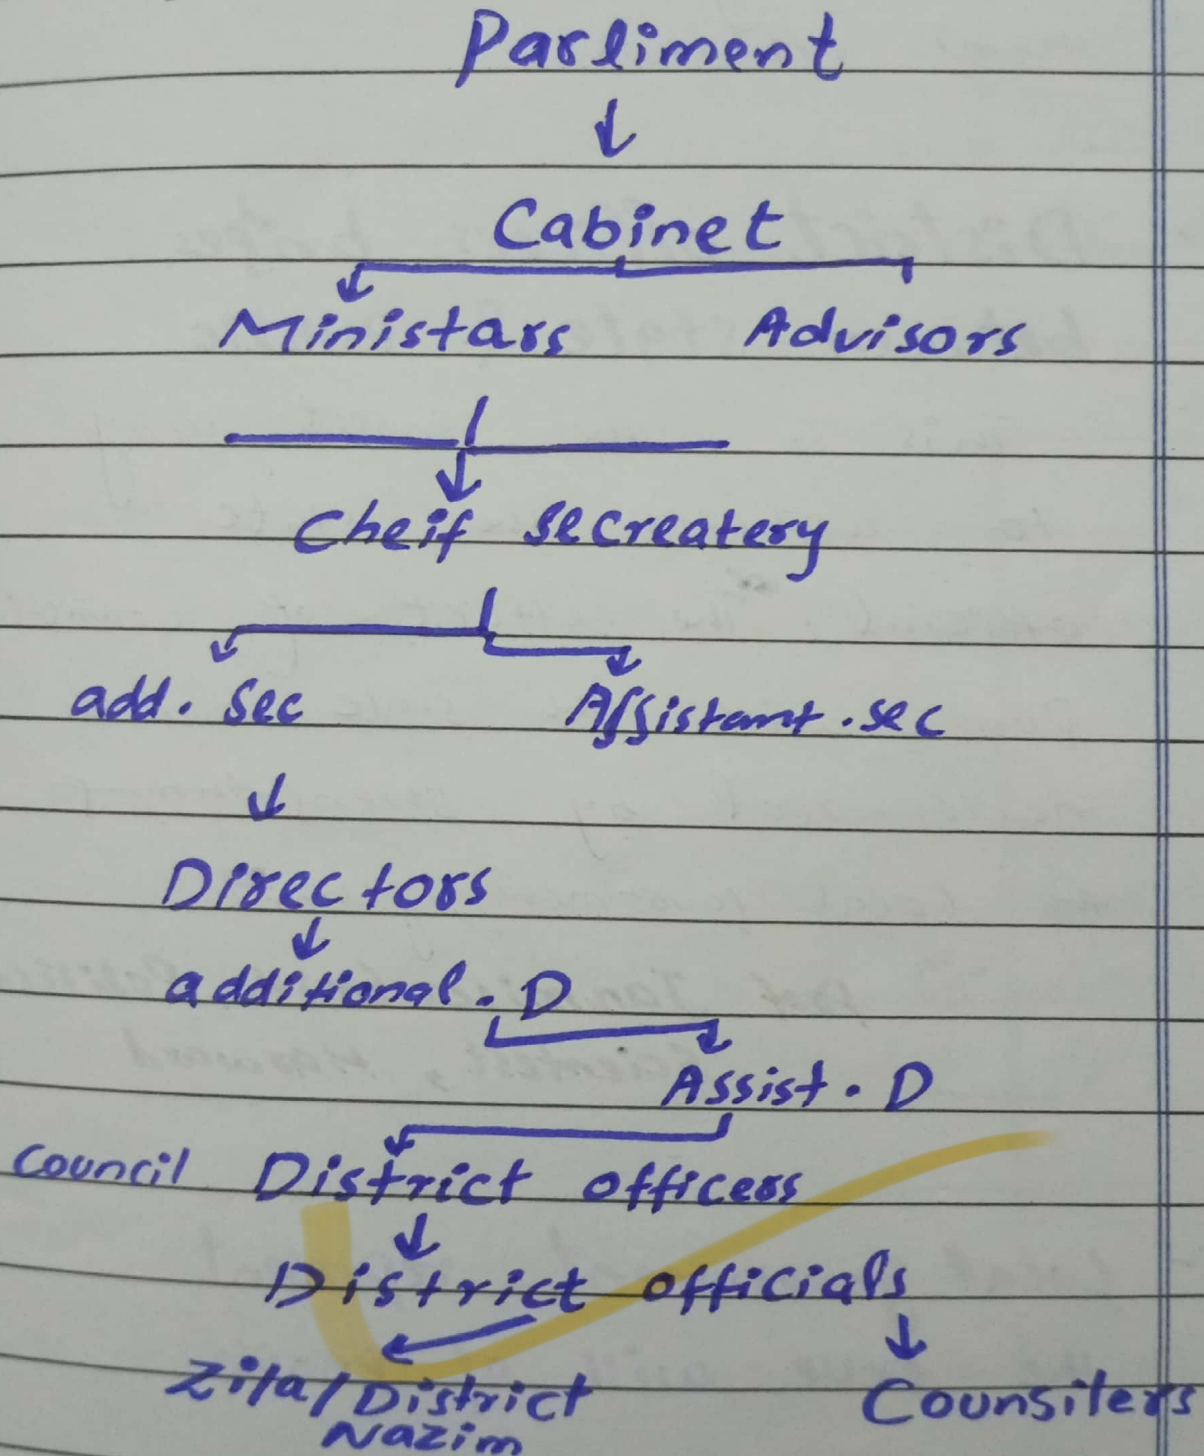 Parliment
Cabinet
Ministars Advisors
Cheif secreatery
add. sec Assistant.sec
Directors
additional. D
Assist. D
Council District officers
District officials
Zila/District Counsilers
Nazim